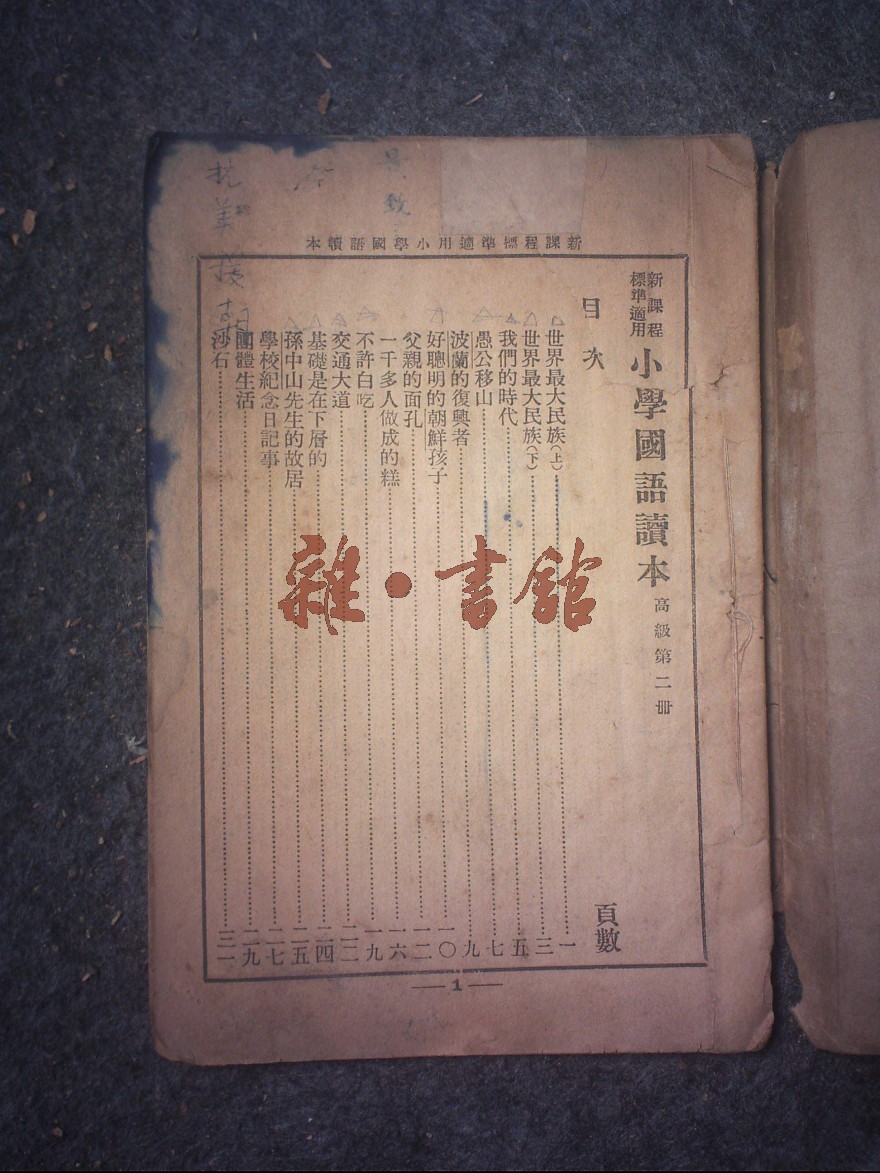 新課程標準適用小學國語讀本
新課程標準適用
小學國語讀本
高級第二冊
目次
頁數
世界最大民族(上)……一
世界最大民族(下)……三
我們的時代……五
愚公移山……七
波蘭的復興者……九
好聰明的朝鮮孩子……一〇
父親的面孔……一二
一千多人做成的糕……一六
不許白吃……一九
交通大道……二二
基礎是在下層的……二四
孫中山先生的故居……二五
學校紀念日記事……二七
團體生活……二九
沙石……三一
—1—
抗美援朝
雜·書館